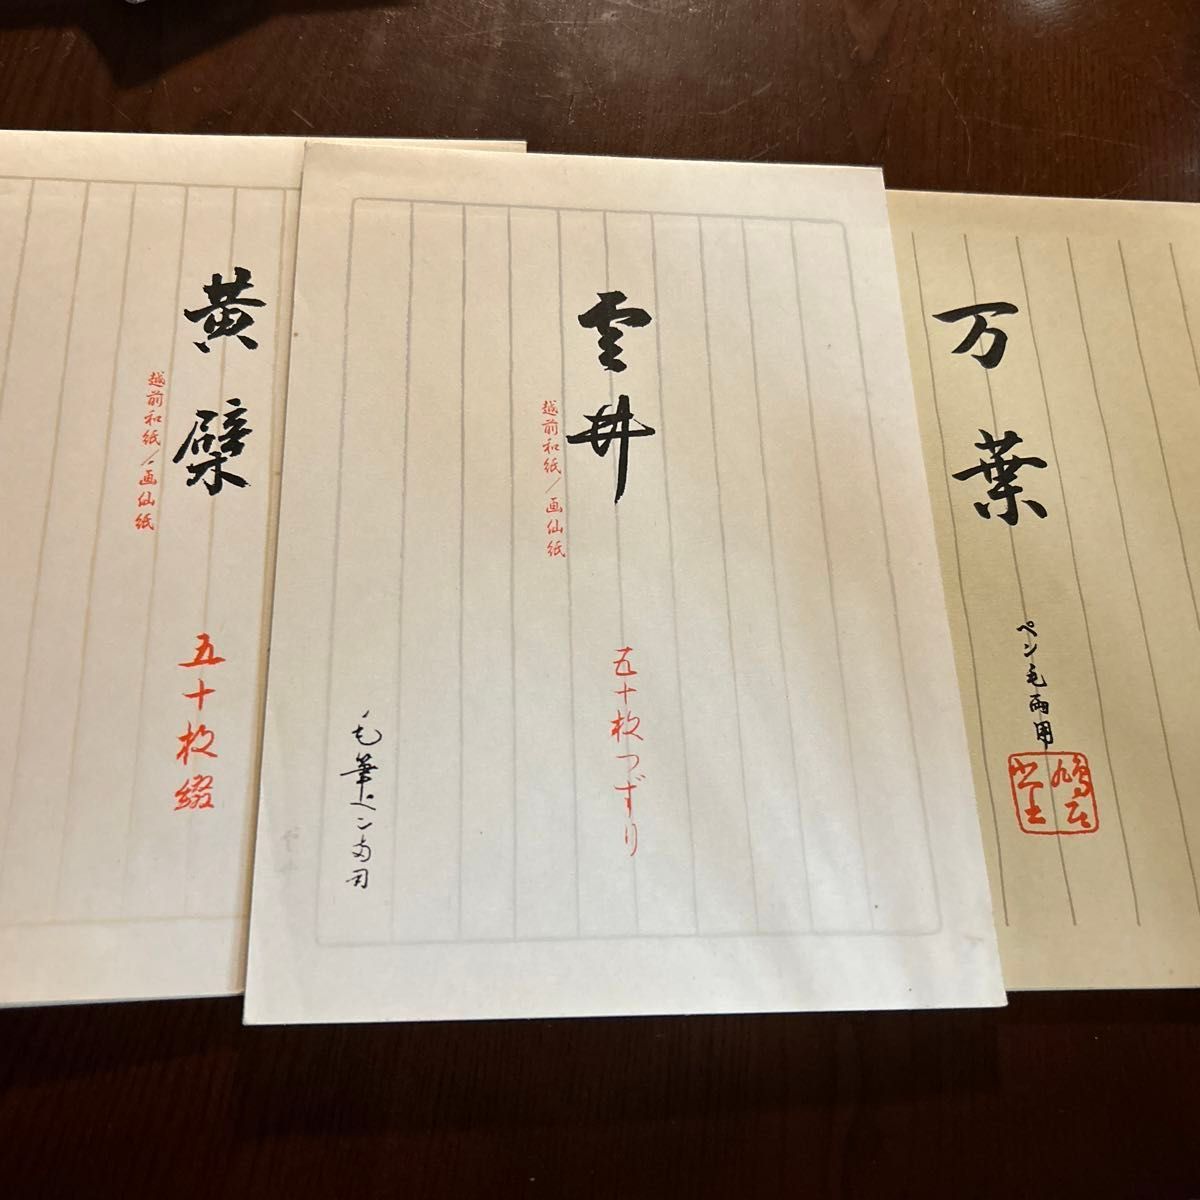 黄檗
越前和紙/画仙紙
五十枚綴
雲井
越前和紙/画仙紙
五十枚つずり
毛筆ペン両用
万葉
ペン毛両用
鳩居堂